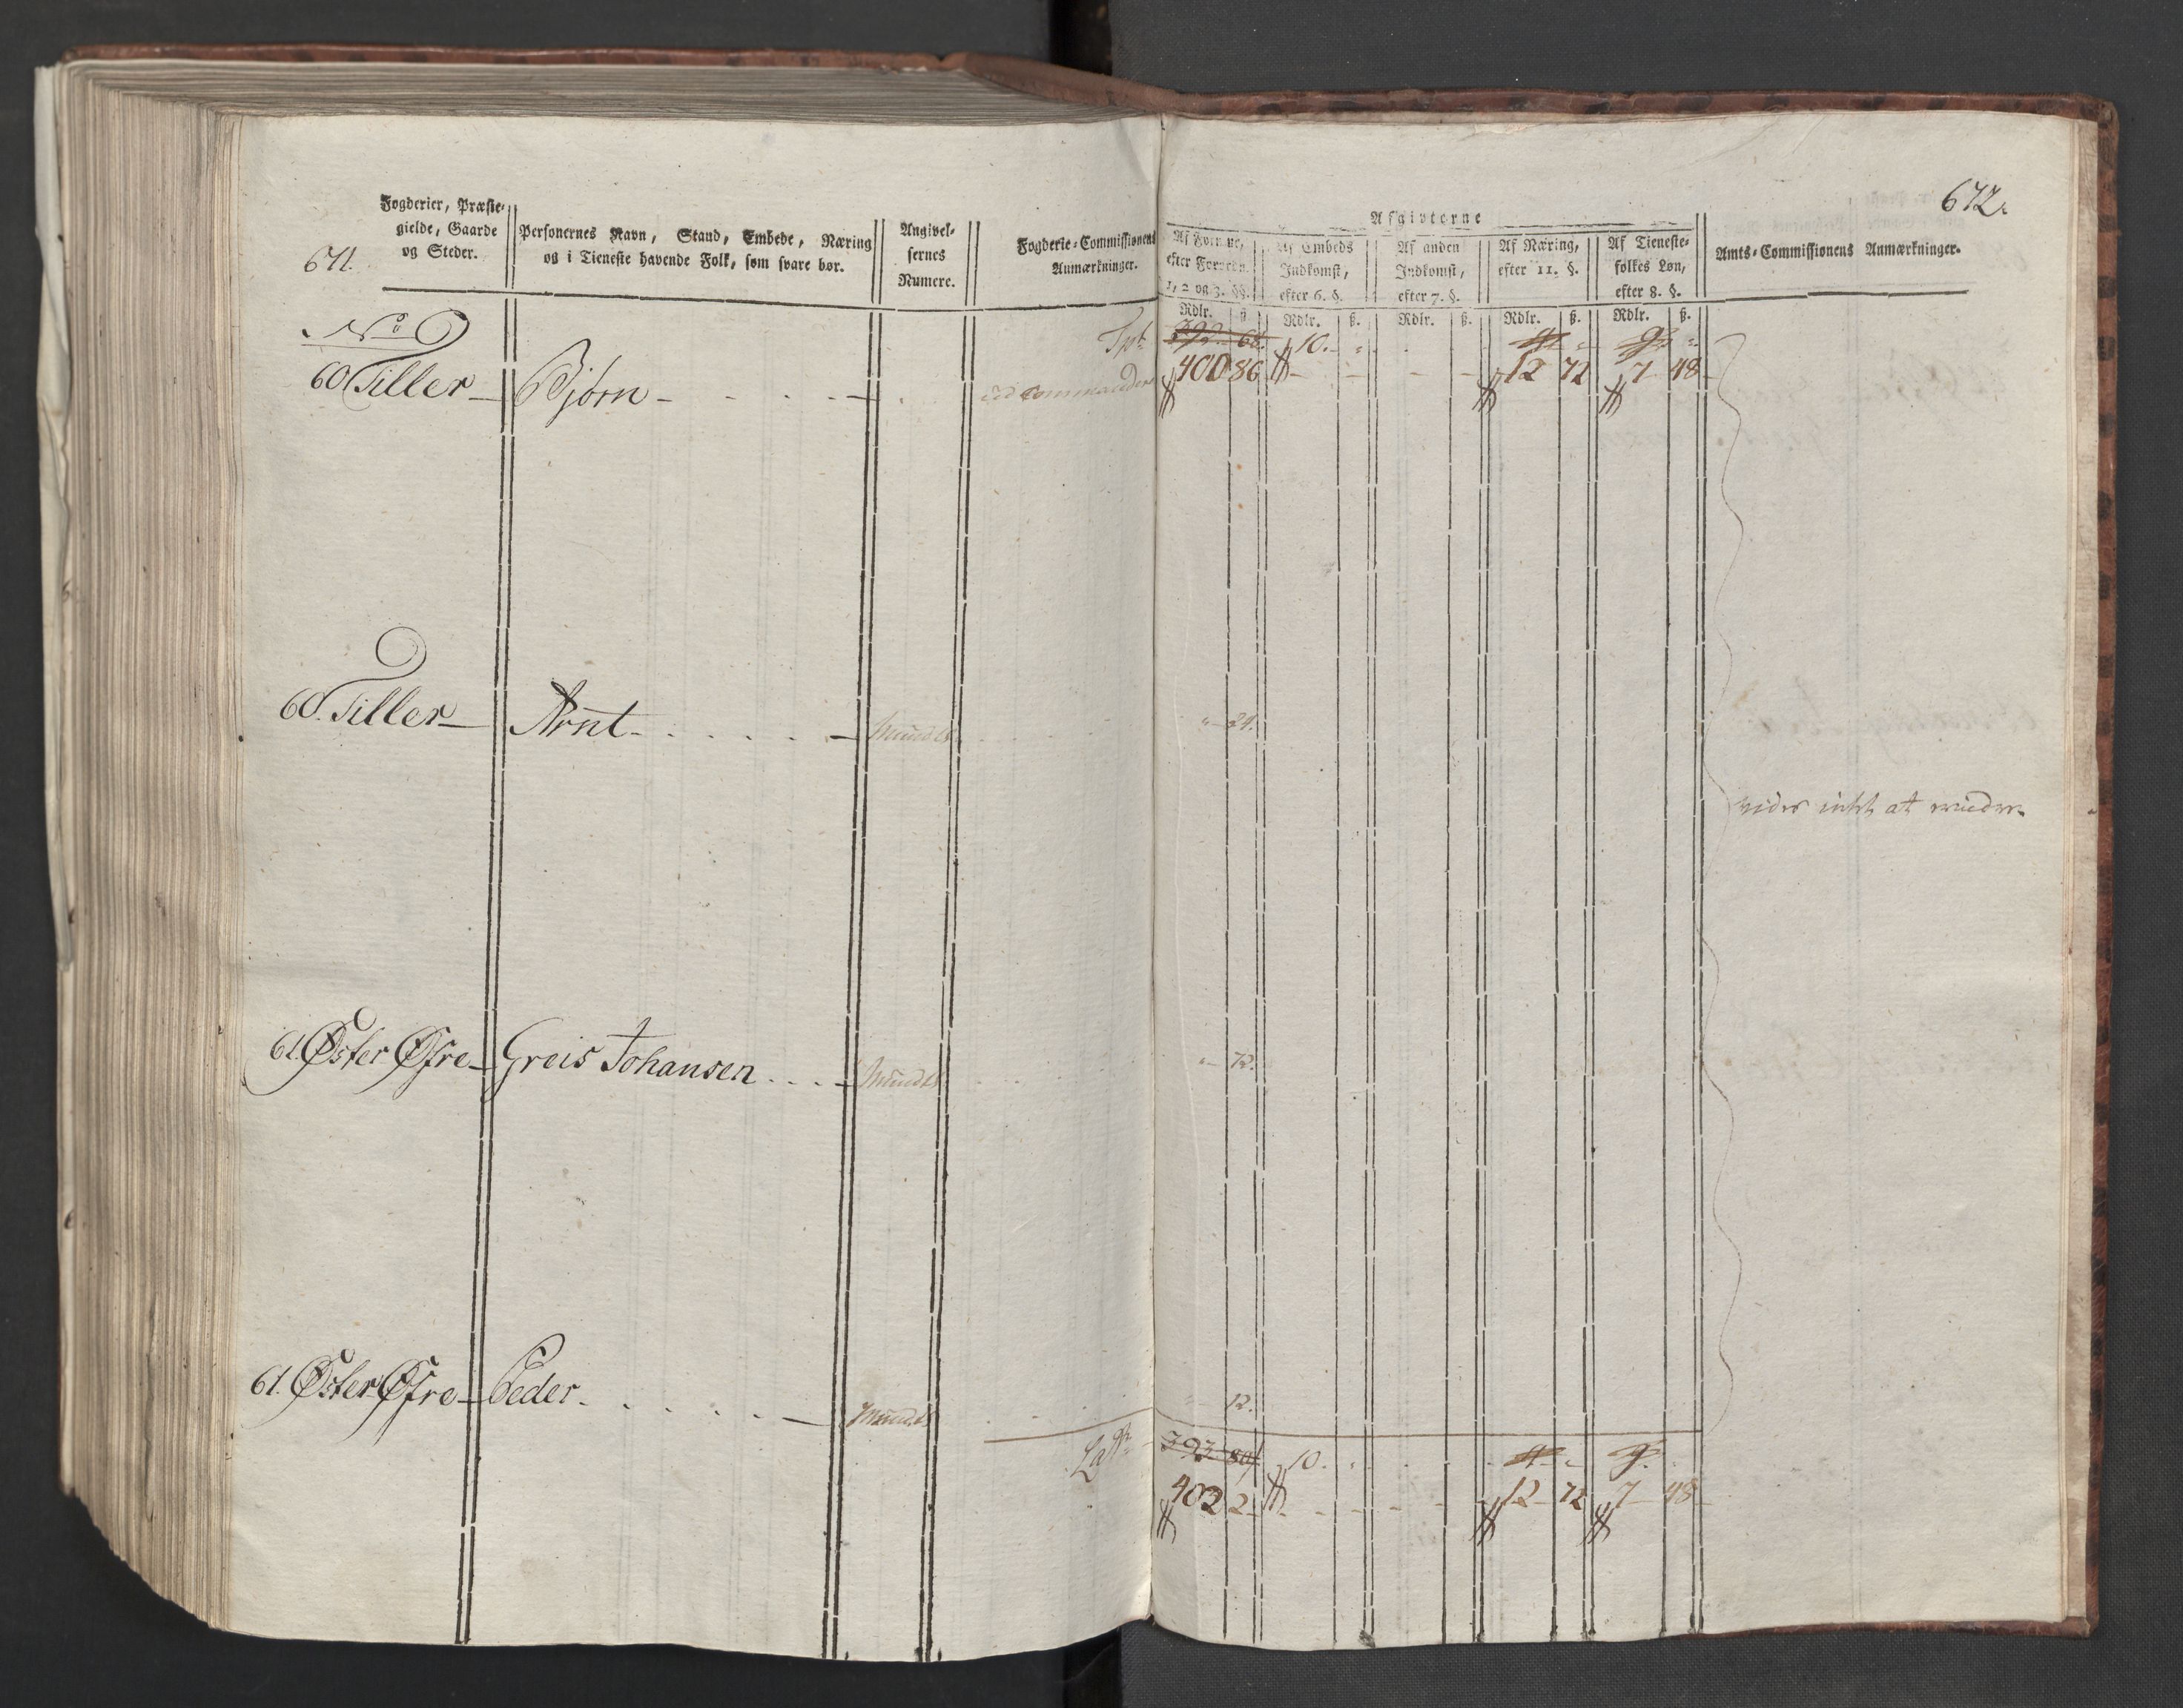 671.
Fogderier, Præste-
gielde, Gaarde
og Steder.
Personernes Navn, Stand, Embede, Næring
og i Tieneste havende Folk, som svare bør.
Angivel-
sernes
Numere.
Fogderie-Commissionens
Anmærkninger.
No
60 Tiller - Bjørn - . . . -
60. Tiller - Arnt - . . . . . - Mundtl.
61. Øster Øfre - Greis Johansen . . . - Mundtl.
61. Øster Øfre - Peder . . . . . - Mundtl.
672.
Afgivterne
Af Formue,
efter Forordn.
1, 2 og 3. §§.
Af Embeds
Indkomst,
efter 6. §.
Af anden
Indkomst,
efter 7. §.
Af Næring,
efter 11. §.
Af Tieneste-
folkes Løn,
efter 8. §.
Amts-Commissionens Anmærkninger.
Rdlr. ß. Rdlr. ß. Rdlr. ß. Rdlr. ß. Rdlr. ß.
Tpt. 392 68. 10. 4 9
400 86 12 72 7 48
„ 24.
vides intet at erindre.
„ 72.
12.
Latr. 393 80 10. 4 9
402 2 12 72 7 48